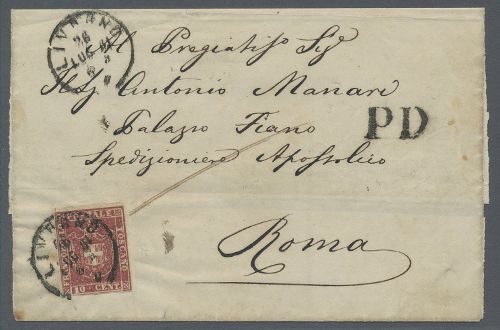 LIVORNO
26
LUG 61
Al Pregiatis̃ Sig͂
Il Sig Antonio Manari
Palazzo Fiano
Spedizioniere Apostolico
PD
Roma
LIVORNO
TOSCANO
10 CENT